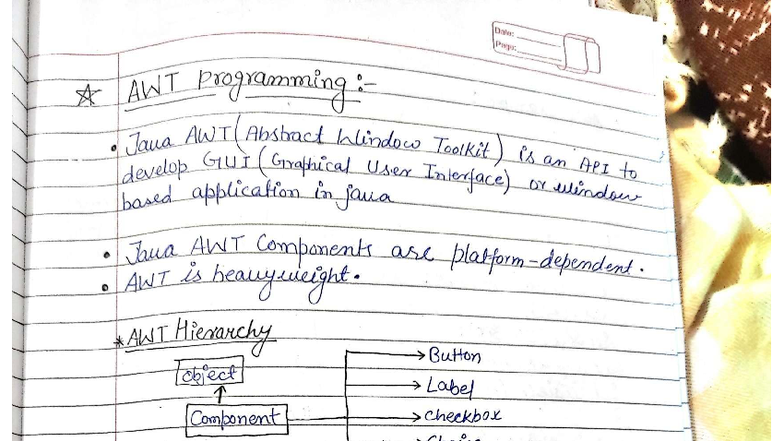 Date:
Page:
☆ AWT Programming :-
• Java AWT (Abstract Window Toolkit) is an API to
develop GUI (Graphical User Interface) or window
based application in java
• Java AWT Components are platform-dependent.
• AWT is heavyweight.
* AWT Hierarchy
Object
Component
Button
Label
Checkbox